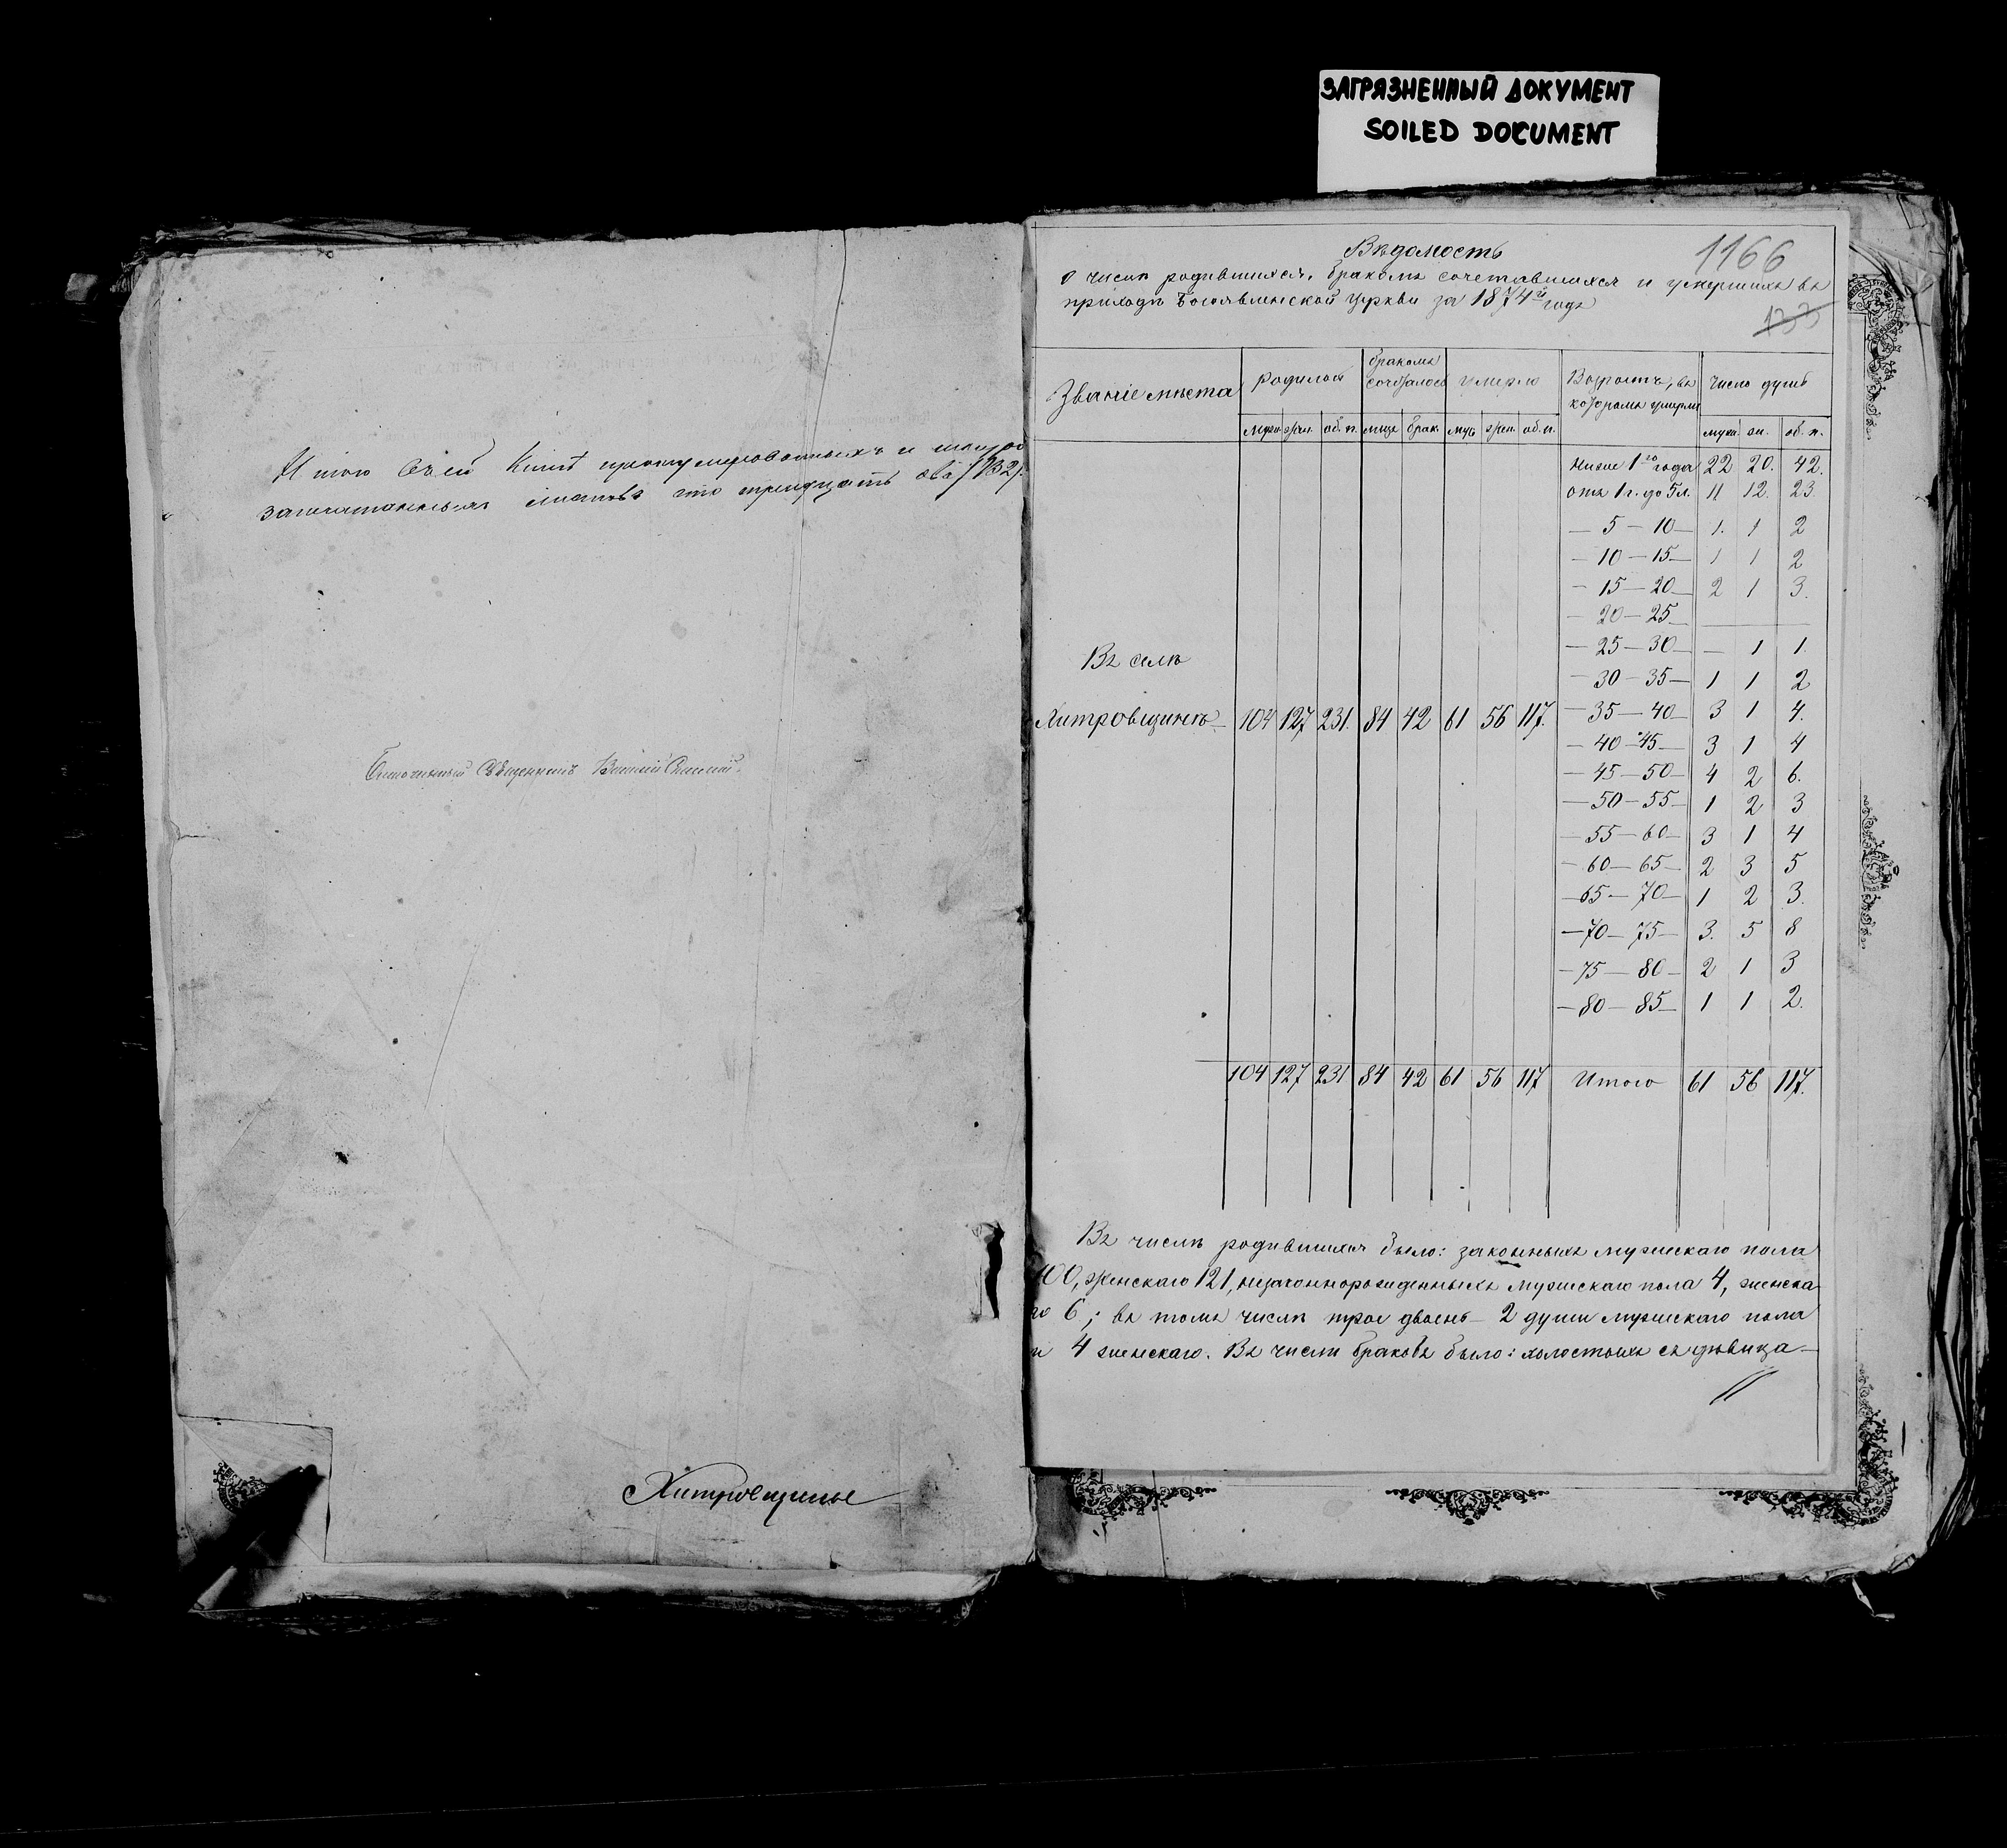 ЗАГРЯЗНЕННЫЙ ДОКУМЕНТ
SOILED DOCUMENT
Итого въ сей Книгѣ пронумерованныхъ и
запечатанныхъ листовъ сто тридцать два (132).
Священникъ
Хитровщины
1166
Вѣдомость
о числѣ родившихся, бракомъ сочетавшихся и умершихъ въ
приходѣ Богоявленской Церкви за 1874й годъ
133
Званіе мѣста родилось бракомъ сочеталось умерло Возрастъ, въ которомъ умерли Число душъ
муж. жен. об. п. лицъ брак. муж. жен. об. п. муж. жен. об. п.
ниже 1го года 22 20. 42.
отъ 1 г. до 5 л. 11 12. 23.
— 5 — 10 — 1. 1 2
— 10 — 15 — 1 1 2
— 15 — 20 — 2 1 3.
— 20 — 25 —
— 25 — 30 — — 1 1.
Въ селѣ
— 30 — 35 — 1 1 2
Хитровщинѣ 104 127 231. 84 42 61 56 117. — 35 — 40 — 3 1 4.
— 40 — 45 — 3 1 4
— 45 — 50 — 4 2 6.
— 50 — 55 — 1 2 3
— 55 — 60 — 3 1 4
— 60 — 65 — 2 3 5
— 65 — 70 — 1 2 3.
— 70 — 75 — 3. 5 8
— 75 — 80 — 2 1 3
— 80 — 85 — 1 1 2.
104 127 231 84 42 61 56 117 Итого 61 56 117.
Въ числѣ родившихся было: законныхъ мужескаго пола
100, женскаго 121, незаконнорожденныхъ мужескаго пола 4, женска-
го 6; въ томъ числѣ трое двоень — 2 души мужескаго пола
и 4 женскаго. Въ числѣ браковъ было: холостыхъ съ дѣвица-